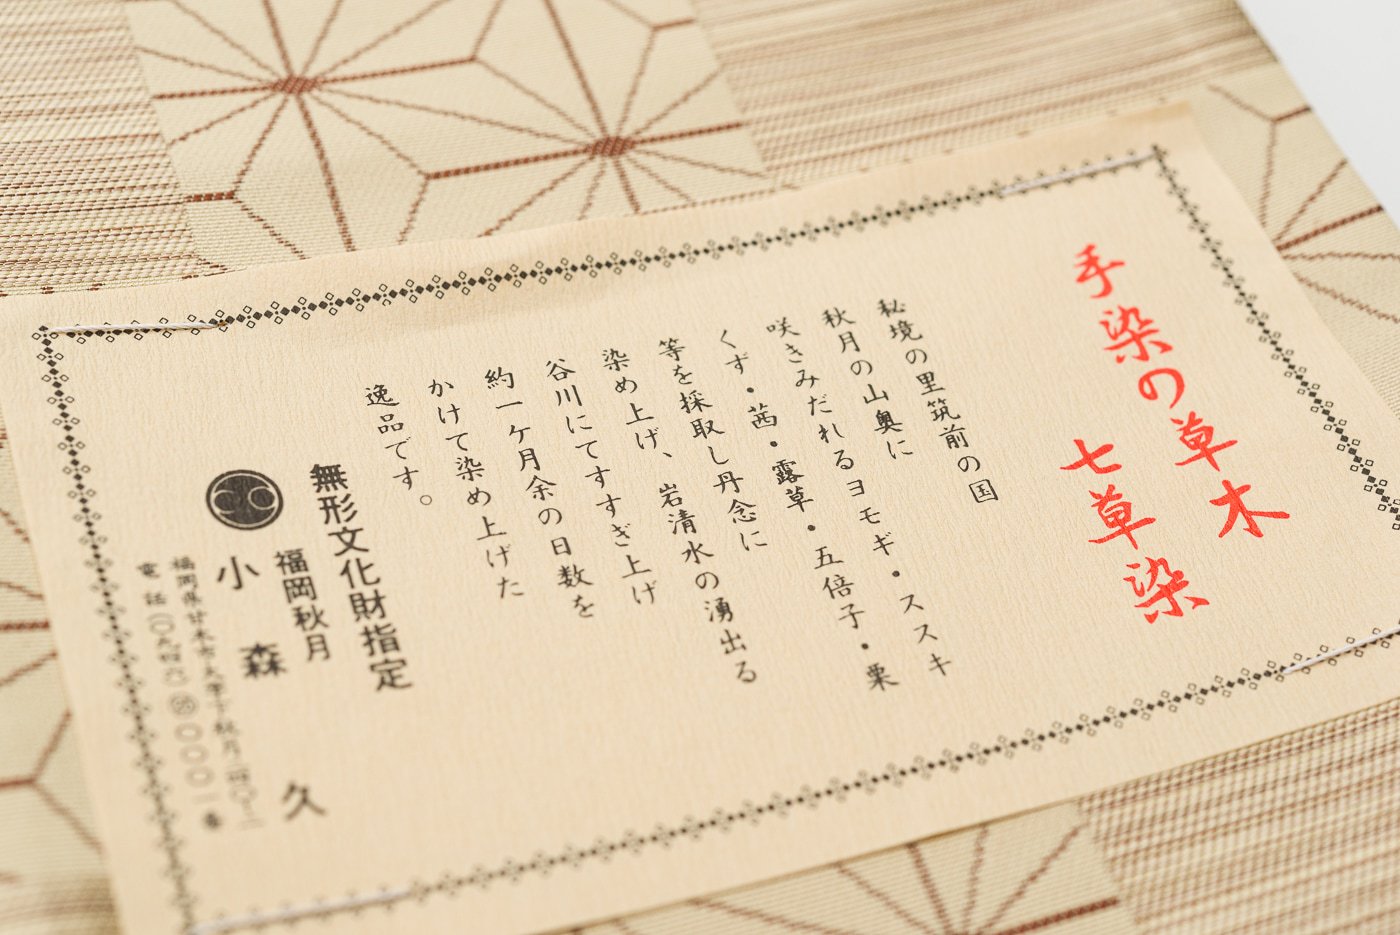 手染の草木
七草染
秘境の里筑前の国
秋月の山奥に
咲きみだれるヨモギ・ススキ
くず・茜・露草・五倍子・栗
等を採取し丹念に
染め上げ、岩清水の湧出る
谷川にてすすぎ上げ
約一ヶ月余の日数を
かけて染め上げた
逸品です。
無形文化財指定
福岡秋月
小森久
福岡県甘木市
電話